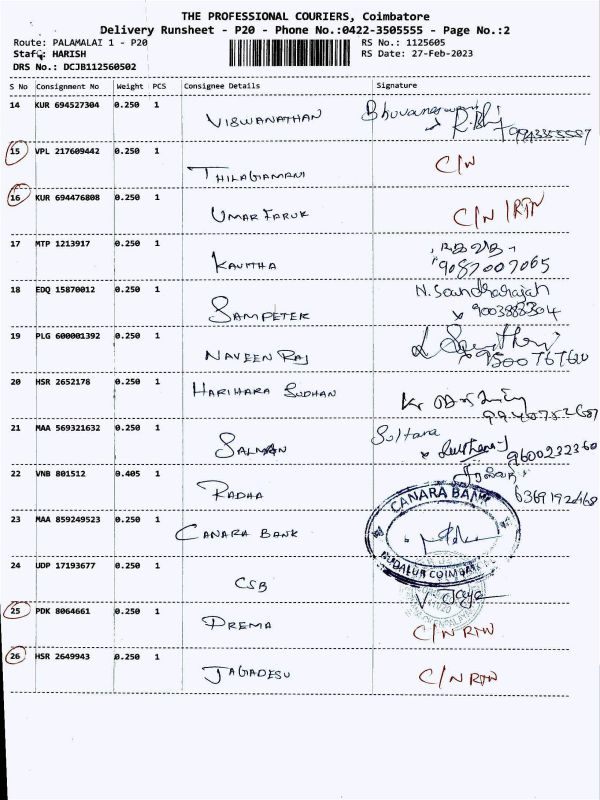 THE PROFESSIONAL COURIERS, Coimbatore
Delivery Runsheet - P20 - Phone No.:0422-3505555 - Page No.:2
Route: PALAMALAI 1 - P20 RS No.: 1125605
Staff: HARISH RS Date: 27-Feb-2023
DRS No.: DCJB112560502
S No Consignment No Weight PCS Consignee Details Signature
14 KUR 694527304 0.250 1 VISWANATHAN Bhuvaneswari
15 VPL 217609442 0.250 1 THILAGAMANI C/N
16 KUR 694476808 0.250 1 UMAR FARUK C/N / RTN
17 MTP 1213917 0.250 1 KAVITHA
9087007065
18 EDQ 15870012 0.250 1 SAMPETER N. Soundharajah
9003888304
19 PLG 600001392 0.250 1 NAVEEN RAJ
9500767620
20 HSR 2652178 0.250 1 HARIHARA SUDHAN
9940752687
21 MAA 569321632 0.250 1 SALMAN Sultana
9600232360
22 VNB 801512 0.405 1 RADHA
6369192468
23 MAA 859249523 0.250 1 CANARA BANK CANARA BANK
GUDALUR COIMBATORE
24 UDP 17193677 0.250 1 CSB V. Jaya
25 PDK 8064661 0.250 1 PREMA C/N RTN
26 HSR 2649943 0.250 1 JAGADESU C/N RTN